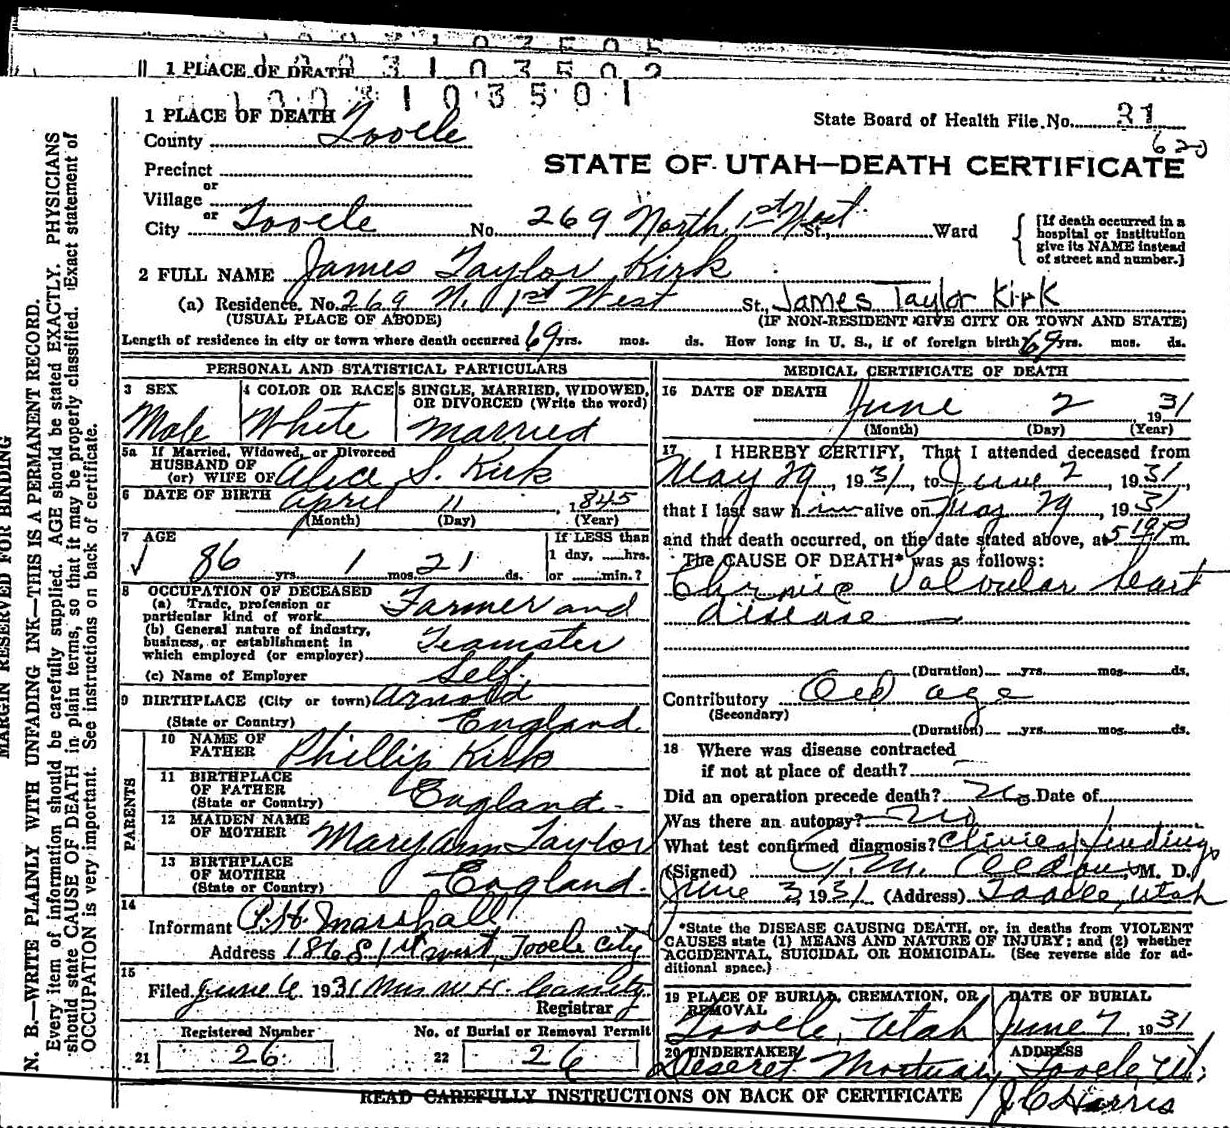 1 PLACE OF DEATH 1 0 0 3 1 0 3 5 0 2
1 0 0 3 1 0 3 5 0 1
1 PLACE OF DEATH
County Tooele
State Board of Health File No. 31
620
Precinct
or
Village
or
City Tooele No. 269 North 1st West St., Ward
STATE OF UTAH—DEATH CERTIFICATE
[If death occurred in a
hospital or institution
give its NAME instead
of street and number.]
2 FULL NAME James Taylor Kirk
(a) Residence. No. 269 N. 1st West St., James Taylor Kirk
(USUAL PLACE OF ABODE) (IF NON-RESIDENT GIVE CITY OR TOWN AND STATE)
Length of residence in city or town where death occurred 69 yrs. mos. ds. How long in U. S., if of foreign birth 69 yrs. mos. ds.
PERSONAL AND STATISTICAL PARTICULARS
3 SEX
Male
4 COLOR OR RACE
White
5 SINGLE, MARRIED, WIDOWED,
OR DIVORCED (Write the word)
Married
5a If Married, Widowed, or Divorced
HUSBAND OF
(or) WIFE OF Alice S. Kirk
6 DATE OF BIRTH April 11, 1845
(Month) (Day) (Year)
7 AGE
86 yrs. 1 mos. 21 ds.
If LESS than
1 day, hrs.
or min.?
8 OCCUPATION OF DECEASED
(a) Trade, profession or
particular kind of work Farmer and
(b) General nature of industry,
business, or establishment in
which employed (or employer) Teamster
(c) Name of Employer Self
9 BIRTHPLACE (City or town) Arnold
(State or Country) England
PARENTS
10 NAME OF
FATHER Phillip Kirk
11 BIRTHPLACE
OF FATHER
(State or Country) England
12 MAIDEN NAME
OF MOTHER Mary Ann Taylor
13 BIRTHPLACE
OF MOTHER
(State or Country) England.
14
Informant P.H. Marshall
Address 186 S 1st West, Tooele City
15
Filed June 6 1931 Mrs W. H.
Registrar
Registered Number
21 26
No. of Burial or Removal Permit
22 26
MEDICAL CERTIFICATE OF DEATH
16 DATE OF DEATH
June 2 1931
(Month) (Day) (Year)
17 I HEREBY CERTIFY, That I attended deceased from
May 29, 1931, to June 2, 1931,
that I last saw him alive on May 29, 1931
and that death occurred, on the date stated above, at 5 10 P m.
The CAUSE OF DEATH* was as follows:
Chronic Valvular heart
disease
(Duration) yrs. mos. ds.
Contributory Old age
(Secondary)
(Duration) yrs. mos. ds.
18 Where was disease contracted
if not at place of death?
Did an operation precede death? No Date of
Was there an autopsy? No
What test confirmed diagnosis? Clinical findings
(Signed) M. D.
June 3 1931 (Address) Tooele, Utah
*State the DISEASE CAUSING DEATH, or, in deaths from VIOLENT
CAUSES state (1) MEANS AND NATURE OF INJURY; and (2) whether
ACCIDENTAL, SUICIDAL OR HOMICIDAL. (See reverse side for ad-
ditional space.)
19 PLACE OF BURIAL, CREMATION, OR
REMOVAL
Tooele, Utah
DATE OF BURIAL
June 7, 1931
20 UNDERTAKER
Deseret Mortuary
ADDRESS
Tooele, Ut.
J C Harris
READ CAREFULLY INSTRUCTIONS ON BACK OF CERTIFICATE
MARGIN RESERVED FOR BINDING
N. B.—WRITE PLAINLY WITH UNFADING INK—THIS IS A PERMANENT RECORD.
Every item of information should be carefully supplied. AGE should be stated EXACTLY. PHYSICIANS
should state CAUSE OF DEATH in plain terms, so that it may be properly classified. Exact statement of
OCCUPATION is very important. See instructions on back of certificate.